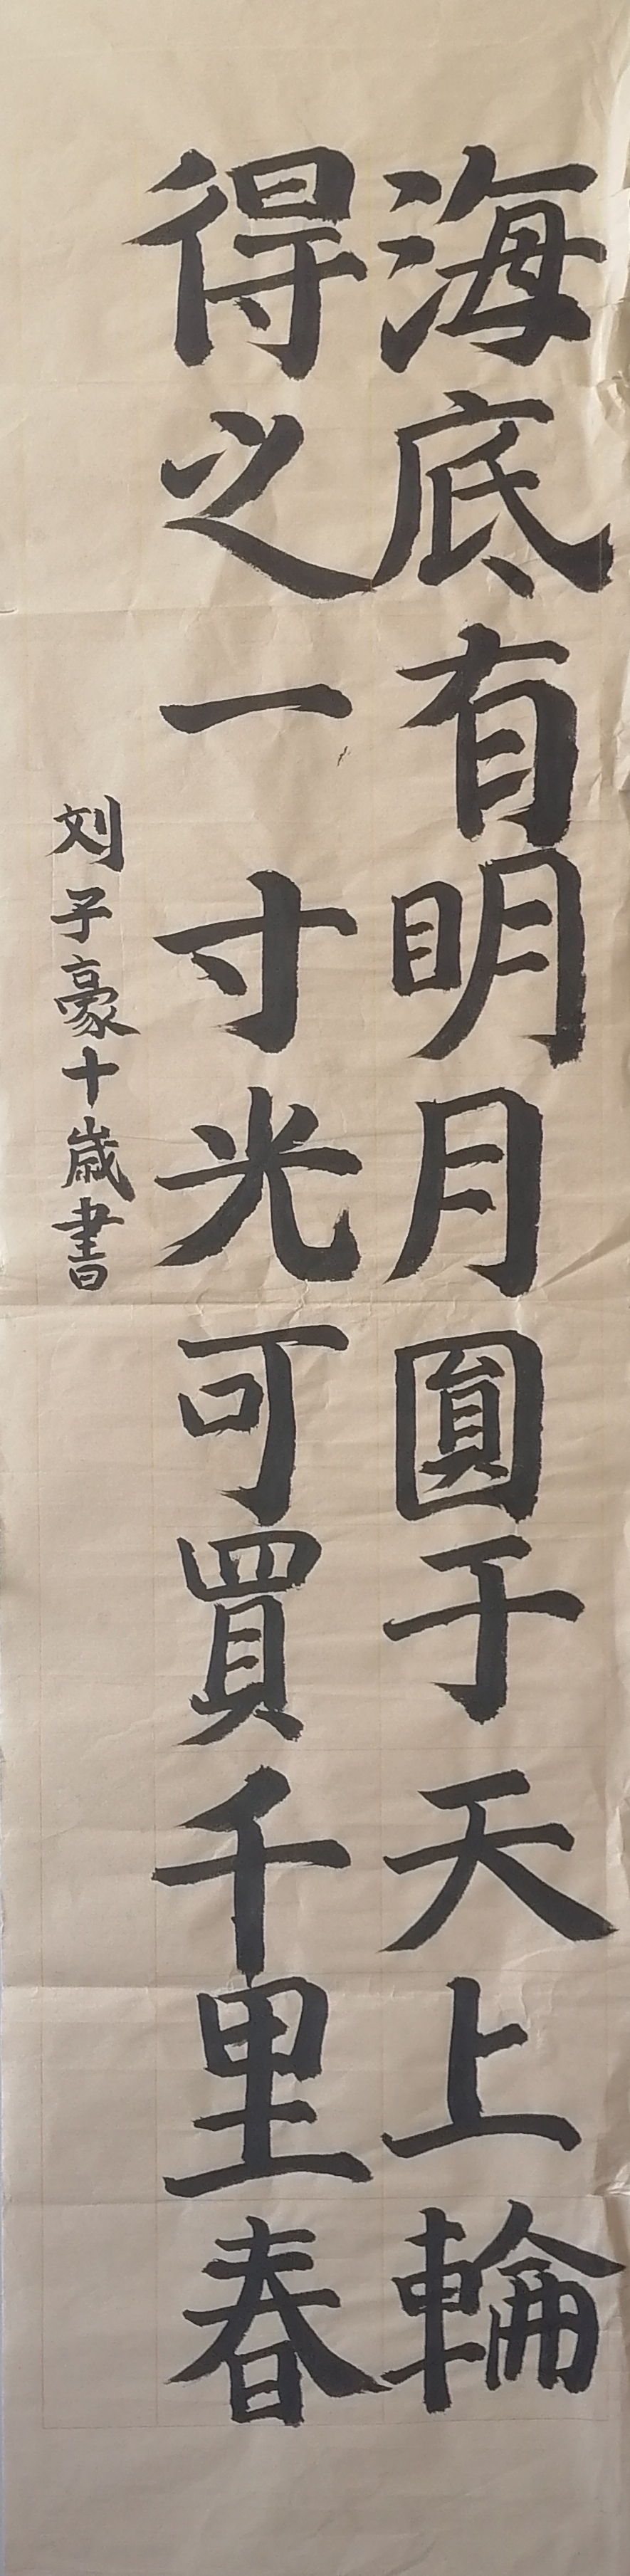 海底有明月圓于天上輪
得之一寸光可買千里春
刘子豪十歲書